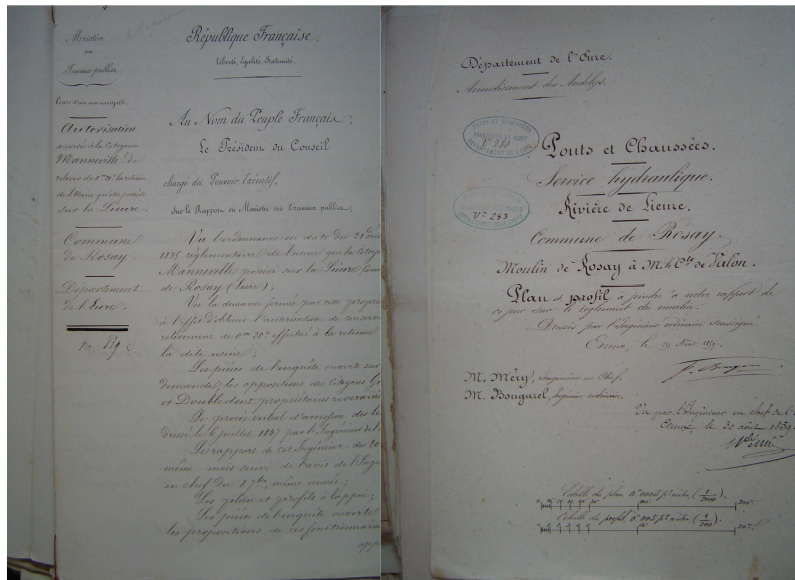 Ministère
des
Travaux publics
République Française.
Liberté, Égalité, Fraternité.
Autorisation
accordée à la Citoyenne
Manneville de
relever de 0m,20c la retenue
de l'Usine qu'elle possède
sur la Lieure.
Commune
de Rosay.
Département
de l'Eure.
Au Nom du Peuple Français;
Le Président du Conseil
chargé du Pouvoir Exécutif,
sur le Rapport du Ministre des travaux publics;
Vu l'ordonnance en date du 21
1825 réglementaire de l'usine que la Citoy
Manneville possède sur la Lieure
de Rosay (Eure);
Vu la demande formée par cette propri
à l'effet d'obtenir l'autorisation de conserver
relèvement de 0m 20c effectué à la retenue
la dite usine;
Les pièces de l'enquête ouverte sur
demande, les oppositions des Citoyens
et Doubledent propriétaires riverains
Le procès verbal d'accession des
dressé le 6 juillet 1847 par l'Ingénieur de l'
Le rapport de ces Ingénieur des 20
même mois suivi de l'avis de l'Ingé
en chef du 17bre même année;
Les plan et profils à l'appui;
Les pièces de l'enquête ouverte
les propositions de ces fonctionnaires
Département de l'Eure.
Arrondissement des Andelys.
N° 283
Ponts et Chaussées.
Service hydraulique.
Rivière de Lieure.
Commune de Rosay.
Moulin de Rosay à M. le Cte de Valon.
Plan et profil à joindre à notre rapport de
ce jour sur le règlement du moulin.
Dressé par l'Ingénieur ordinaire soussigné
Evreux, le 29 Août 1859.
M. Méry, Ingénieur en Chef.
M. Bougarel, Ingénieur ordinaire.
Vu par l'Ingénieur en chef de l'
Evreux, le 30 août 1859.
Echelle du plan 0m.0005 pr mètre (1/2000).
Echelle du profil 0m.005 pr mètre (1/200).